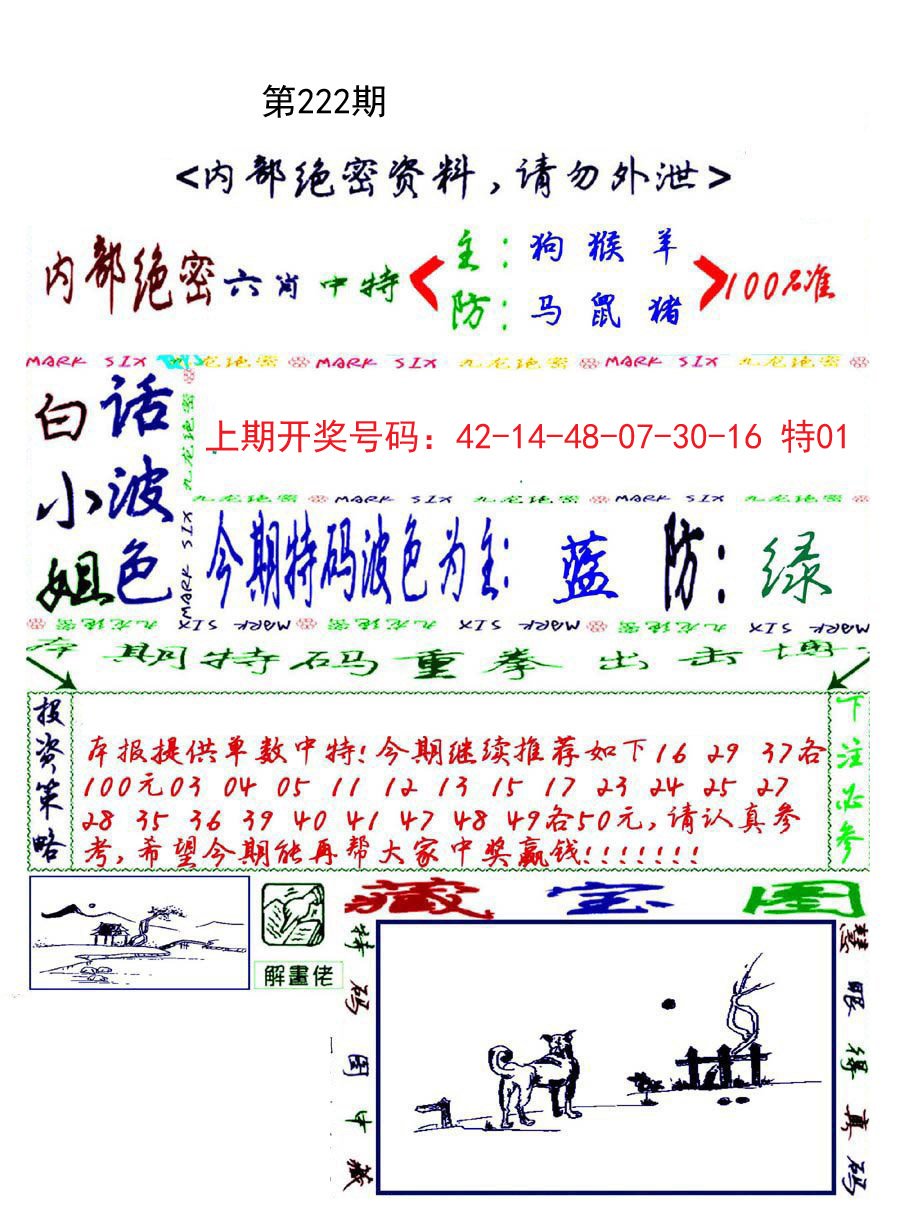 第222期
<内部绝密资料,请勿外泄>
内部绝密六肖中特
主:狗猴羊
防:马鼠猪
100%准
MARK SIX 九龙绝密 MARK SIX 九龙绝密 MARK SIX 九龙绝密
白小姐
话波色
九龙绝密
MARK SIX
上期开奖号码：42-14-48-07-30-16 特01
九龙绝密 MARK SIX 九龙绝密 MARK SIX 九龙绝密
今期特码波色为主:蓝 防:绿
MARK SIX 九龙绝密 MARK SIX 九龙绝密 MARK SIX 九龙绝密
本期特码重拳出击博
投资策略
本报提供单数中特!今期继续推荐如下16 29 37各
100元03 04 05 11 12 13 15 17 23 24 25 27
28 35 36 39 40 41 47 48 49各50元,请认真参
考,希望今期能再帮大家中奖赢钱!!!!!!!
下注必参
解畫佬
藏宝图
特码图中藏
慧眼得真码